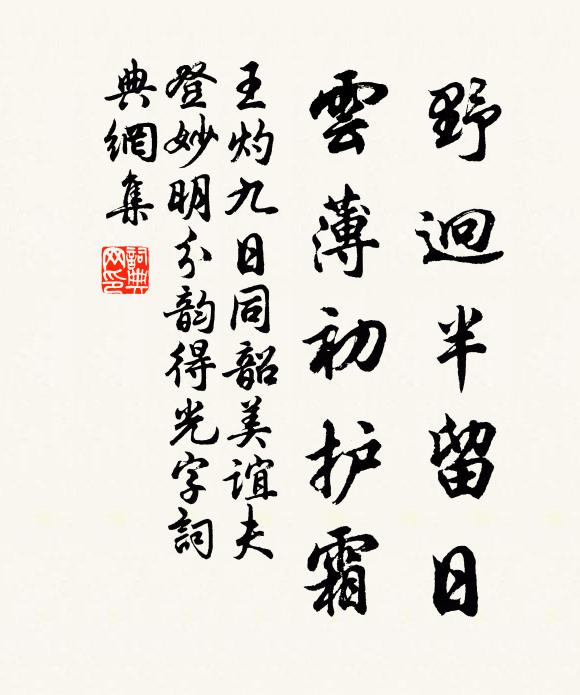 野迥半留日
雲薄初护霜
王灼九日同韶美誼夫
登妙明分韵得光字詞
典網集
詞典網印